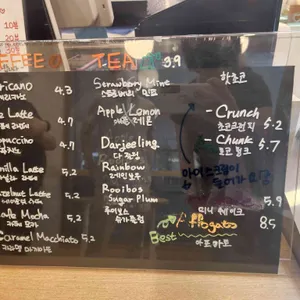 COFFEE
TEA 3.9
ricano 4.3
Latte 4.7
ppuccino 4.7
nilla Latte 5.2
zelnut Latte 5.2
afe Mocha 5.2
카페 모카
Caramel Macchiato 5.2
Strawberry Mint
스트로베리 민트
Apple Lemon
애플 레몬
Darjeeling
다즐링
Rainbow
레인보우
Rooibos
Sugar Plum
루이보스
슈가플럼
핫초코
- Crunch 5.2
- Chunk 5.7
초코 청크
아이스크림이
5.9
Best
Affogato 8.5
아포가토